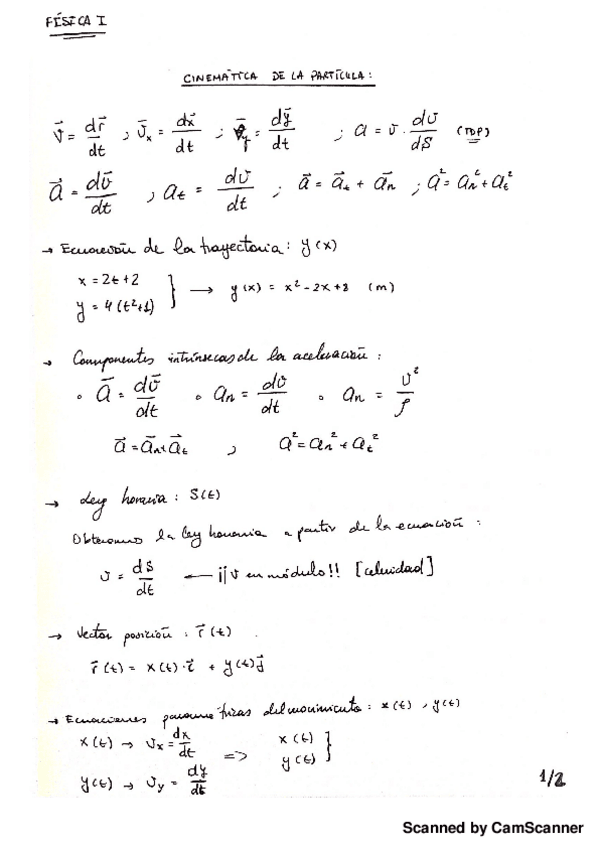 FÍSICA I
CINEMÁTICA DE LA PARTÍCULA:
v⃗ = dr⃗/dt ; v⃗x = dx⃗/dt ; v⃗y = dy⃗/dt ; a = v · dv/ds (TDP)
a⃗ = dv⃗/dt , at = dv/dt ; a⃗ = a⃗t + a⃗n ; a² = an² + at²
→ Ecuación de la trayectoria: y(x)
x = 2t+2
y = 4(t²+1) } → y(x) = x² - 2x + 8 (m)
→ Componentes intrínsecas de la aceleración:
∘ a⃗ = dv⃗/dt ∘ an = dv/dt ∘ an = v²/ρ
a⃗ = a⃗n + a⃗t , a² = an² + at²
→ Ley horaria: S(t)
Obtenemos la ley horaria a partir de la ecuación:
v = ds/dt ← ¡¡v en módulo!! [celeridad]
→ Vector posición: r⃗(t).
r⃗(t) = x(t)·i⃗ + y(t)j⃗
→ Ecuaciones paramétricas del movimiento: x(t), y(t)
x(t) → vx = dx/dt
y(t) → vy = dy/dt => x(t) y(t) }
1/2
Scanned by CamScanner